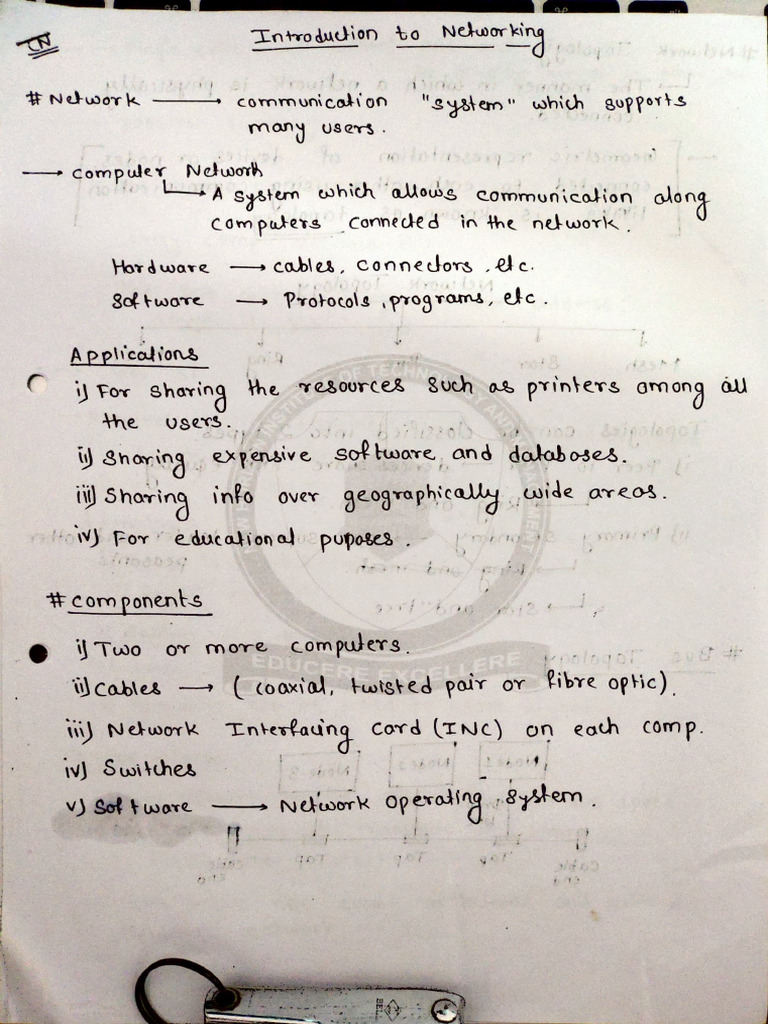 CN
Introduction to Networking
# Network → communication "system" which supports
many users.
→ computer Network
→ A system which allows communication along
computers connected in the network.
Hardware → cables, connectors, etc.
Software → Protocols, programs, etc.
Applications
i) For sharing the resources such as printers among all
the users.
ii) Sharing expensive software and databases.
iii) Sharing info over geographically wide areas.
iv) For educational puposes.
# components
i) Two or more computers.
EDUCERE EXCELLERE
ii) Cables → (coaxial, twisted pair or fibre optic).
iii) Network Interfacing Card (INC) on each comp.
iv) Switches
v) Software → Network operating system.